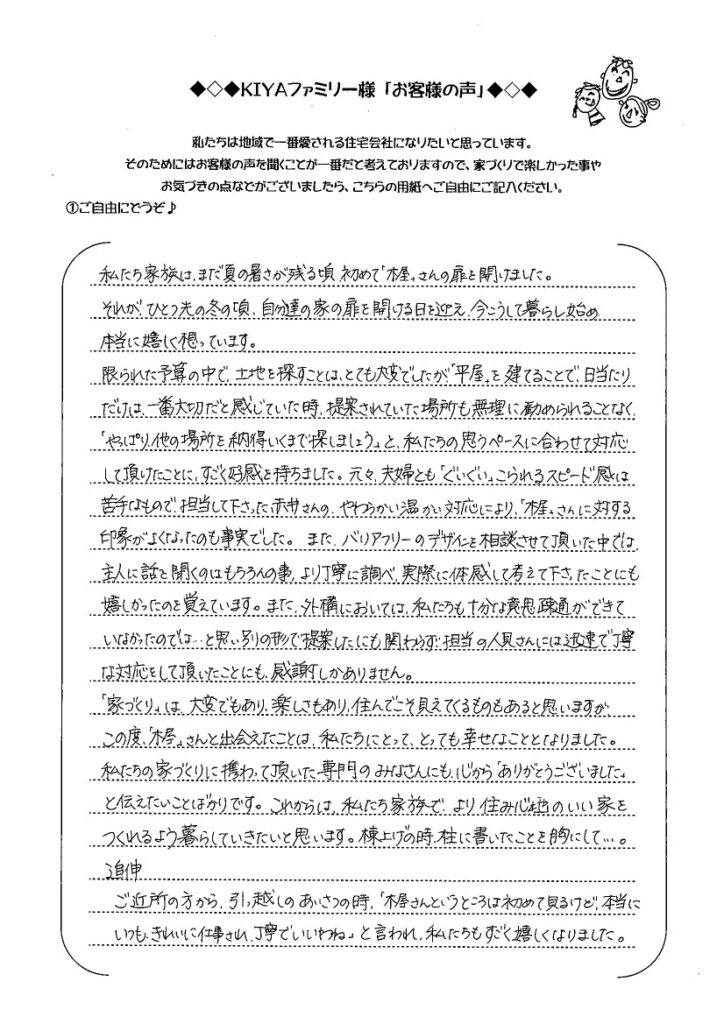 ◆◇◆KIYAファミリー様「お客様の声」◆◇◆
私たちは地域で一番愛される住宅会社になりたいと思っています。
そのためにはお客様の声を聞くことが一番だと考えておりますので、家づくりで楽しかった事や
お気づきの点などがございましたら、こちらの用紙へご自由にご記入ください。
①ご自由にどうぞ♪
私たち家族は、まだ夏の暑さが残る頃、初めて「木屋」さんの扉を開けました。
それが、ひとつ先の冬の頃、自分達の家の扉を開ける日を迎え、今こうして暮らし始め
本当に嬉しく想っています。
限られた予算の中で、土地を探すことは、とても大変でしたが、「平屋」を建てることで、日当たり
だけは、一番大切だと感じていた時、提案されていた場所も無理に勧められることなく、
「やっぱり、他の場所を納得いくまで探しましょう」と、私たちの思うペースに合わせて対応
して頂けたことに、すごく好感を持ちました。元々、夫婦とも「ぐいぐい」こられるスピード感は
苦手なもので、担当して下さった赤サさんの、やわらかい温かい対応により、「木屋」さんに対する
印象がよくなったのも事実でした。また、バリアフリーのデザインを相談させて頂いた中では、
主人に話を聞くのはもちろんの事、より丁寧に調べ、実際に体感して考えて下さったことにも
嬉しかったのを覚えています。また、外構においては、私たちも十分な意思疎通ができて
いなかったのでは…と思い別の形で提案したにも関わらず担当の人見さんには迅速で丁寧
な対応をして頂いたことにも、感謝しかありません。
「家づくり」は、大変でもあり、楽しさもあり、住んでこそ見えてくるものもあると思いますが、
この度、「木屋」さんと出会えたことは、私たちにとって、とっても幸せなこととなりました。
私たちの家づくりに携わって頂いた専門のみなさんにも、心から「ありがとうございました」
と伝えたいことばかりです。これからは、私たち家族で、より住み心地のいい家を
つくれるよう暮らしていきたいと思います。棟上げの時、柱に書いたことを胸にして…。
追伸
ご近所の方から、引っ越しのあいさつの時、「木屋さんというところは初めて見るけど、本当に
いつも、きれいに仕事され、丁寧でいいわね」と言われ、私たちもすごく嬉しくなりました。